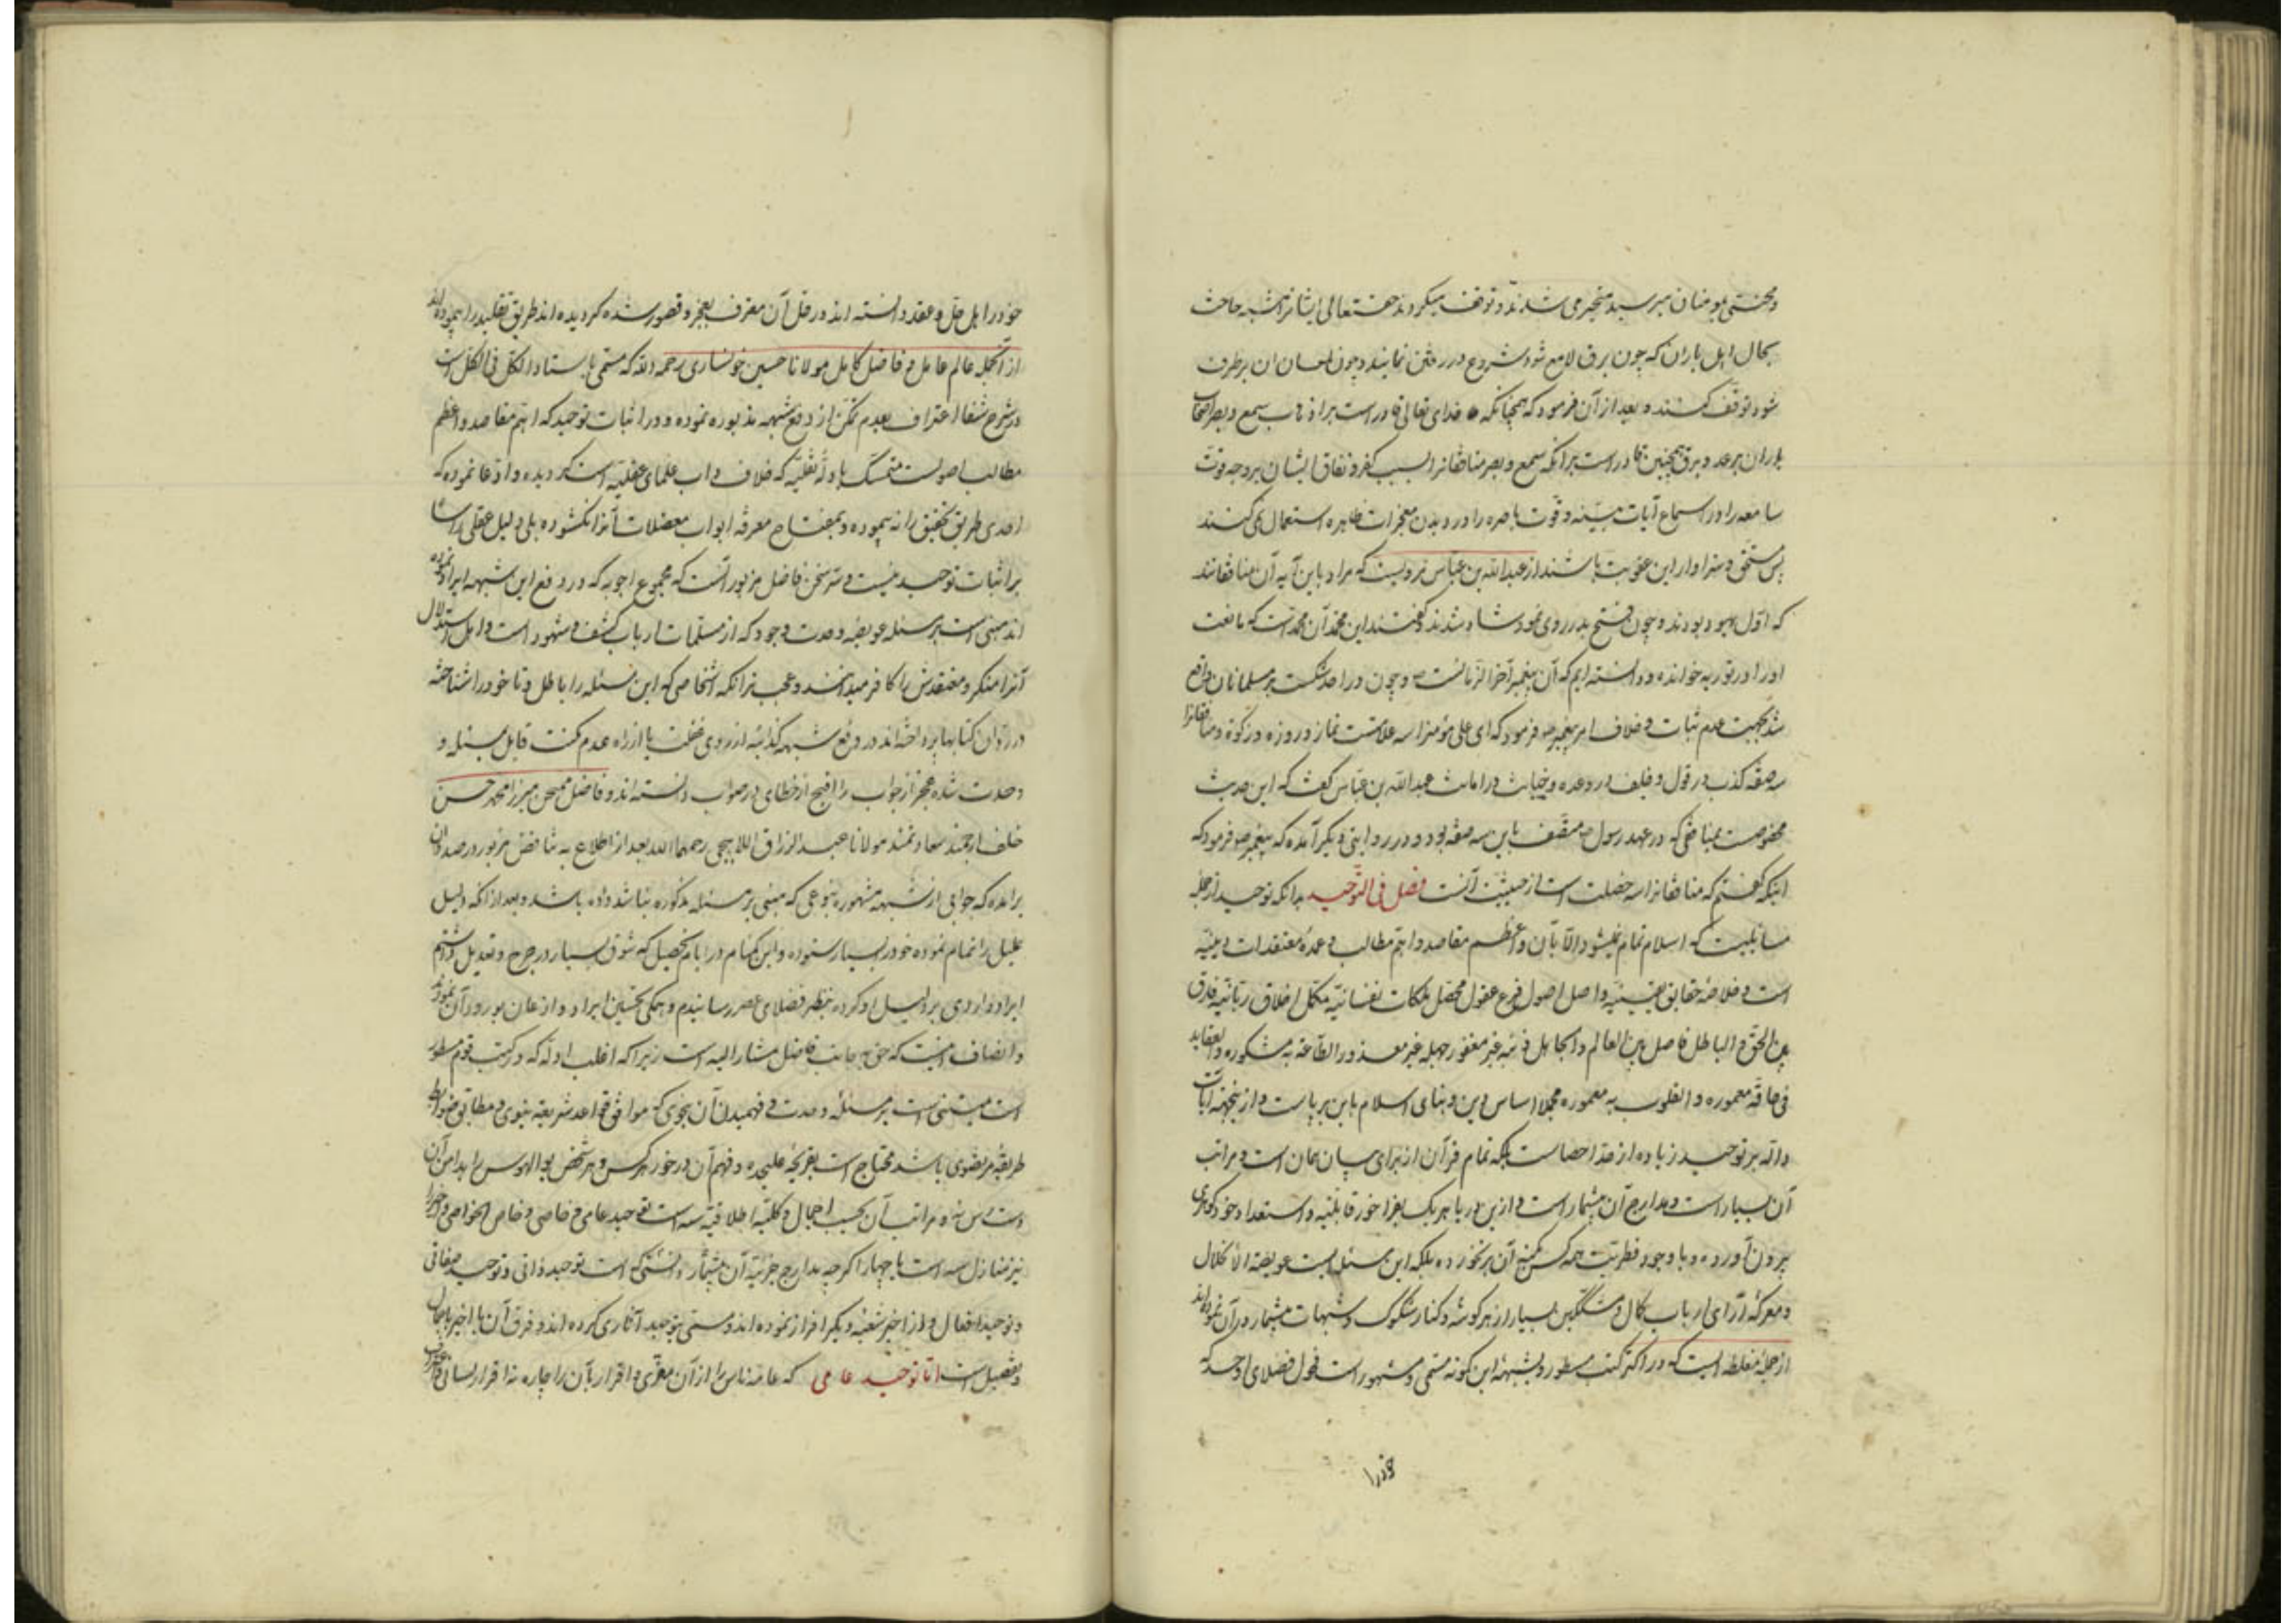 ومحنتی بمومنان میرسید متحیر می شدند و توقف میکردند حقتعالی ایشانرا تشبیه
بحال اهل باران که چون برق لامع شود شروع در رفتن نمایند و چون لمعان آن برطرف
شود توقف کنند و بعد از آن فرمود که همچنانکه خدای تعالی قادرست بر اذهاب سمع و بصر اصحاب
باران برعد و برق همچنین قادر است بر آنکه سمع و بصر منافقانرا بسبب کفر و نفاق ایشان برد چه قوت
سامعه را در اسماع آیات مبینه و قوت باصره را در دیدن معجزات ظاهره استعمال نمی کنند
پس مستحق و سزاوار این عقوبت باشند از عبدالله بن عباس مرویست که مراد باین آیه آن منافقانند
که اول یهود بودند و چون فتح بدر روی نمود شاد شدند و گفتند این محمد آن محمد است که ما نعت
او را در توریه خوانده و دانسته ایم که آن پیغمبر آخر الزمانست و چون در احد شکست بر مسلمانان واقع
شد بجهت عدم ثبات و خلاف امر پیغمبر ص فرمود که ای علی مؤمنرا سه علامتست نماز و روزه و زکوة و منافقانرا
سه صفة کذب در قول و خلف در وعده و خیانت در امانت عبدالله بن عباس گفت که این حدیث
مخصوصست بمنافقی که در عهد رسول ص متصف باین سه صفة بود و در روایتی دیگر آمده که پیغمبر ص فرمود که
اینکه گفتم که منافقانرا سه خصلت است از حیثیت آنست فصل فی التوحید بدانکه توحید از جمله
مسائلیست که اسلام تمام نمیشود الا بآن و اعظم مقاصد و اهم مطالب و عمده معتقدات دینیه
است و خلاصه حقایق یقینیه و اصل اصول فرع عقول محصل ملکات نفسانیه مکمل اخلاق ربانیه فارق
بین الحق و الباطل فاصل بین العالم و الجاهل غیر مغفور جهله غیر معذور الطاعة به مشکوره و العقاید
معموره و القلوب به معموره مجملا اساس دین و بنای اسلام باین برپاست و از ینجهة آیات
داله بر توحید زیاده از حد احصاست بلکه تمام قرآن از برای بیان همان است و مراتب
آن بسیار است و مدارج آن بیشمار است و ازین دریا هر یک بفراخور قابلیة و استعداد خود گوهری
بیرون آورده و با وجود فطریت همه کس بکنه آن برنخورده بلکه این مسئله ایست عویصة الانحلال
و معرکه آرای ارباب کمال و مشککین بسیار از هر گوشه و کنار شکوک و شبهات بیشمار در آن نموده اند
از جمله مغلطه ایست که در اکثر کتب مسطور و بشبهة ابن کمونه مسمی و مشهور است فحول فضلای اوحد که
خود را
خود را اهل حل و عقد دانسته اند در حل آن معترف بعجز و قصور شده گردیده اند طریق تقلید را پیموده اند
از آنجمله عالم عامل و فاضل کامل مولانا حسین خونساری رحمه الله که مسمی باستاد الکل فی الکل است
در شرح شفا اعتراف بعدم تمکن از دفع شبهه مذبوره نموده و در اثبات توحید که اهم مقاصد و اعظم
مطالب اصولست متمسک بادلّه نقلیه که خلاف داب علمای عقلیه است گردیده و ادّعا نموده که
احدی طریق تحقیق را نه پیموده و بمفتاح معرفة ابواب معضلات آنرا نگشوده بلی دلیل عقلی
بر اثبات توحید نیست و تتمه سخن فاضل مزبور آنست که مجموع اجوبه که در دفع این شبهه ایراد نموده
اند مبنی است بر مسئله عویصه وحدت وجود که از مسلمات ارباب کشف و شهود است و اهل استدلال
آنرا منکر و معتقدش را کافر میدانند و عجب تر آنکه اشخاصی که این مسئله را باطل و تا خود را شناخته
در رد آن کتابها پرداخته اند در دفع شبهه کذائیه از روی غفلت یا از راه عدم مکنت قایل بمسئله
وحدت شده عجز از جواب را اقبح از خطای در صواب دانسته اند و فاضل ممتحن میرزا محمد حسن
خلف ارجمند سعادتمند مولانا عبد الرزاق اللاهیجی رحمهما الله بعد از اطلاع به تناقض مزبور در صدد آن
برآمده که جوابی از شبهه مشهوره بنوعی که مبنی بر مسئله مذکوره نباشد داده باشد و بعد از آنکه دلیل
علیل را تمام نموده خود را بسیار ستوده و این گمنام در ایام تحصیل که شوق بسیار در جرح و تعدیل داشتم
ایراد وارد بر دلیل او کرده بنظر فضلای عصر رسانیدم و همگی تحسین ایراد و اذعان بورود آن نمودند
و انصاف اینست که حق بجانب فاضل مشار الیه است زیرا که اغلب ادله که در کتب قوم مسطور
است مبتنی است بر مسئله وحدت و فهمیدن آن بنحوی که موافق قواعد شریعة نبوی و مطابق ضوابط
طریقه مرتضوی باشد محتاج است بقریحه علیحده و فهم آن در خور هر کس و هر شخص بوالهوس را بدامن آن
دست رس نه و مراتب آن بحسب اجمال و کلیة اطلاقیه سه است توحید عامی و خاصی و خاص الخواصی و اخیر را
نیز منازل سه است یا چهار اگر چه مدارج جزئیه آن بیشمار دانستنی که است توحید ذاتی و توحید صفاتی
و توحید افعال و از اخیر شعبه دیگر افراز نموده اند و مسمی بتوحید آثاری کرده اند و فرق آن با اخیر باجمال
و تفصیل است اما توحید عامی که عامه ناس را از آن معرّی و اقرار بآن را چاره نه اقرار لسانی